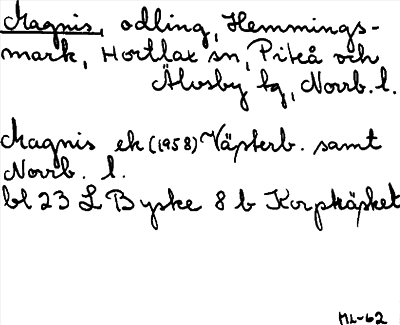 Magnis, odling, Hemmings-
mark, Hortlax sn, Piteå och
Älvsby tg, Norrb. l.
Magnis ek (1958) Västerb. samt
Norrb. l.
bl 23 L Byske 8 b Korpkäsket
ML-62